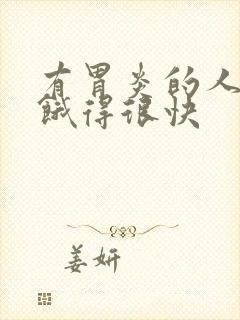 有胃炎的人
饿得很快
姜妍